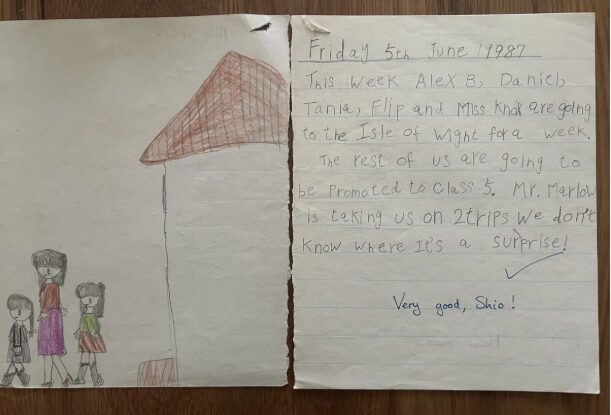 Friday 5th June 1987
This week Alex B, Daniel,
Tania, Flip and Miss Knox are going
to the Isle of Wight for a week.
The rest of us are going to
be promoted to class 5. Mr. Marlow
is taking us on 2 trips we don't
know where It's a surprise!
Very good, Shio!